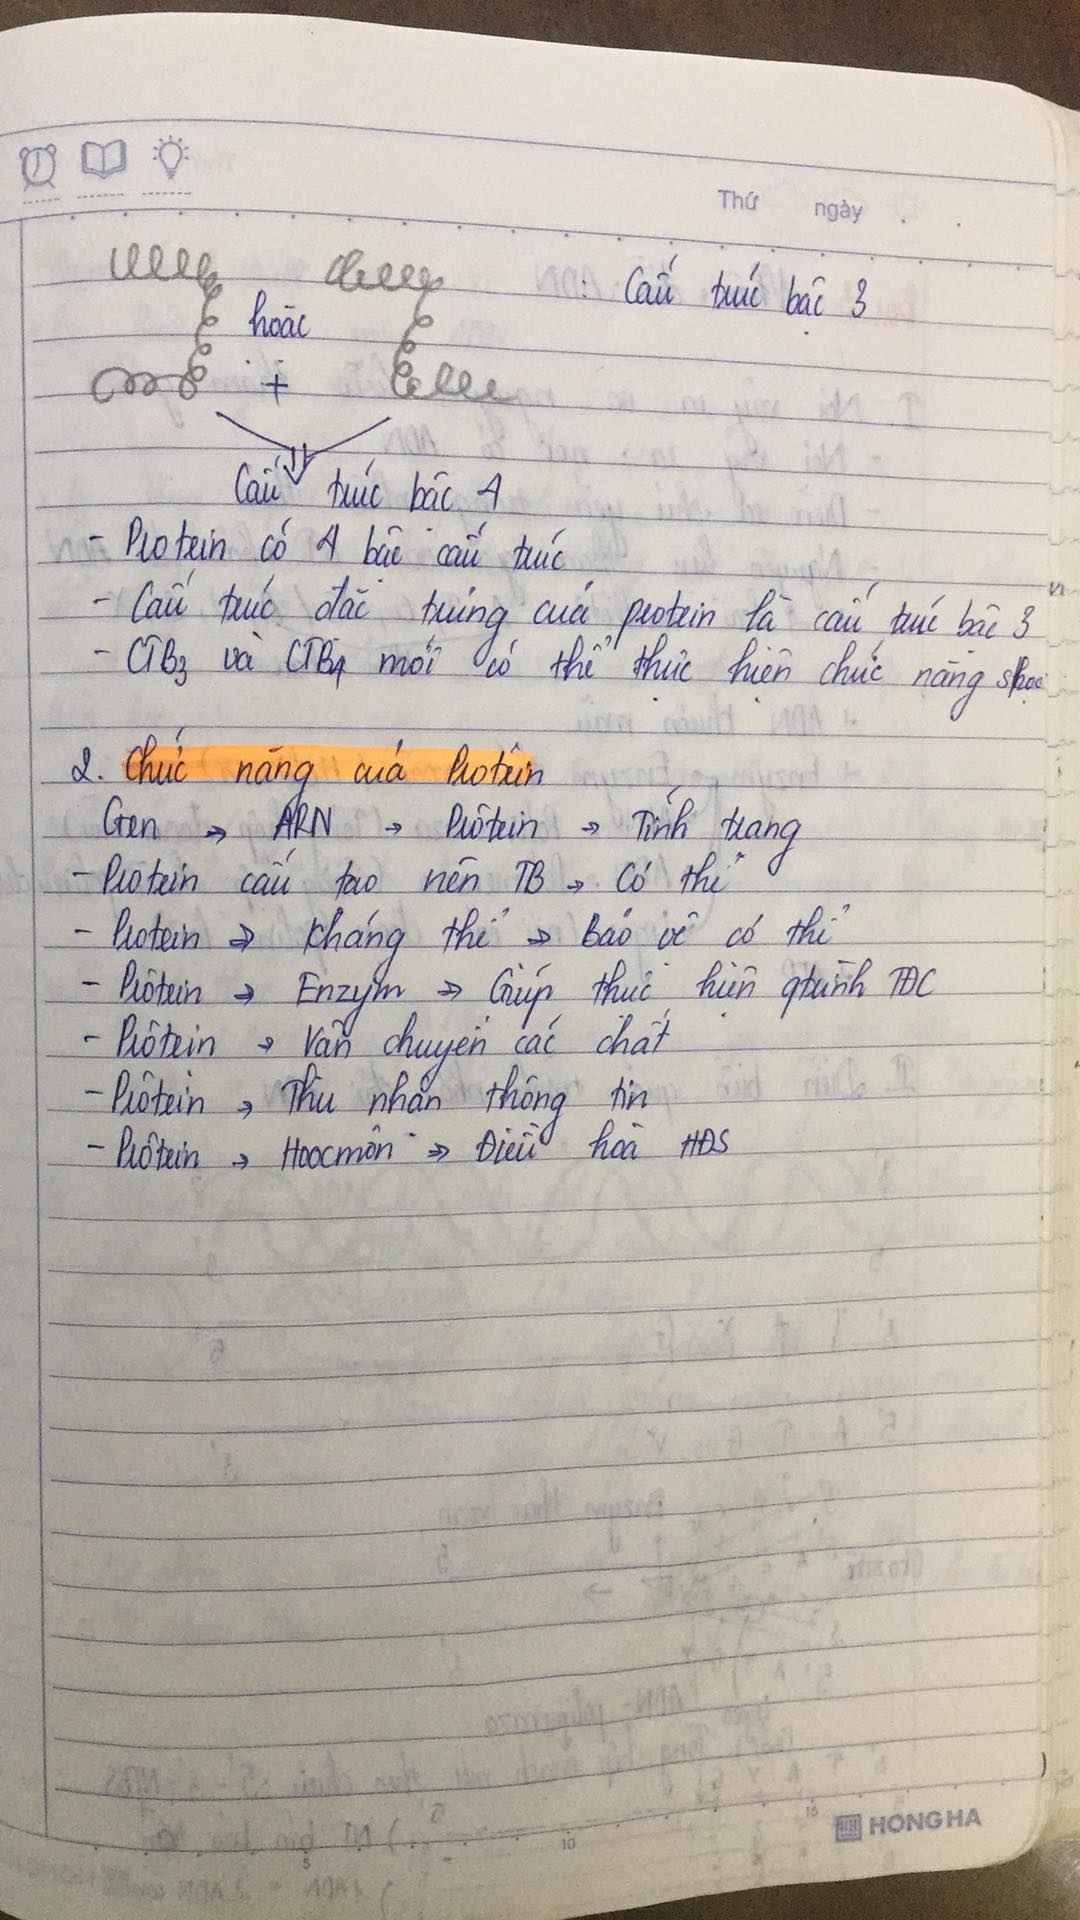 Thứ ngày
: Cấu trúc bậc 3
hoặc
+
Cấu trúc bậc 4
- Protein có 4 bậc cấu trúc
- Cấu trúc đặc trưng của protein là cấu trúc bậc 3
- CTB3 và CTB4 mới có thể thực hiện chức năng shọc
2. Chức năng của Protein
Gen → ARN → Prôtêin → Tính trạng
- Protein cấu tạo nên TB → Cơ thể
- Protein → Kháng thể → Bảo vệ cơ thể
- Prôtêin → Enzym → Giúp thực hiện qtrình TĐC
- Prôtêin → Vận chuyển các chất
- Prôtêin → Thu nhận thông tin
- Prôtêin → Hoocmôn → Điều hoà HĐS
5 10 15
HONG HA